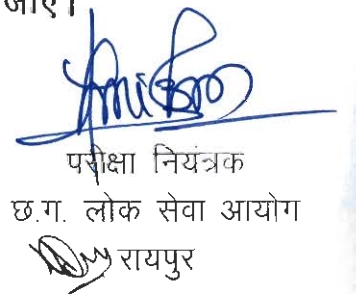 जाए।
परीक्षा नियंत्रक
छ.ग. लोक सेवा आयोग
रायपुर